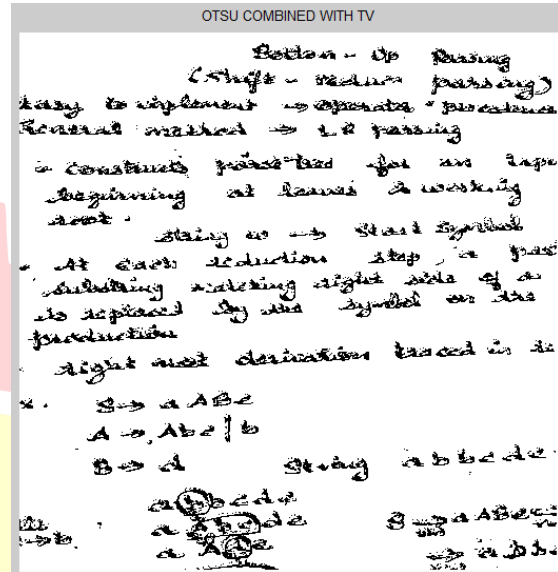 OTSU COMBINED WITH TV
Bottom - Up Parsing
(Shift - Reduce parsing)
easy to implement → operator precedence
General method → LR parsing
constructs parse tree for an input
beginning at leaves & working
root.
string w → start symbol
At each reduction step, a
substring matching right side of a
is replaced by the symbol on the
production
right most derivation traced in
S → a ABe
A → Abc | b
B → d String abbcde
abbcde
a Abcde S ⇒ a ABe
a Ade